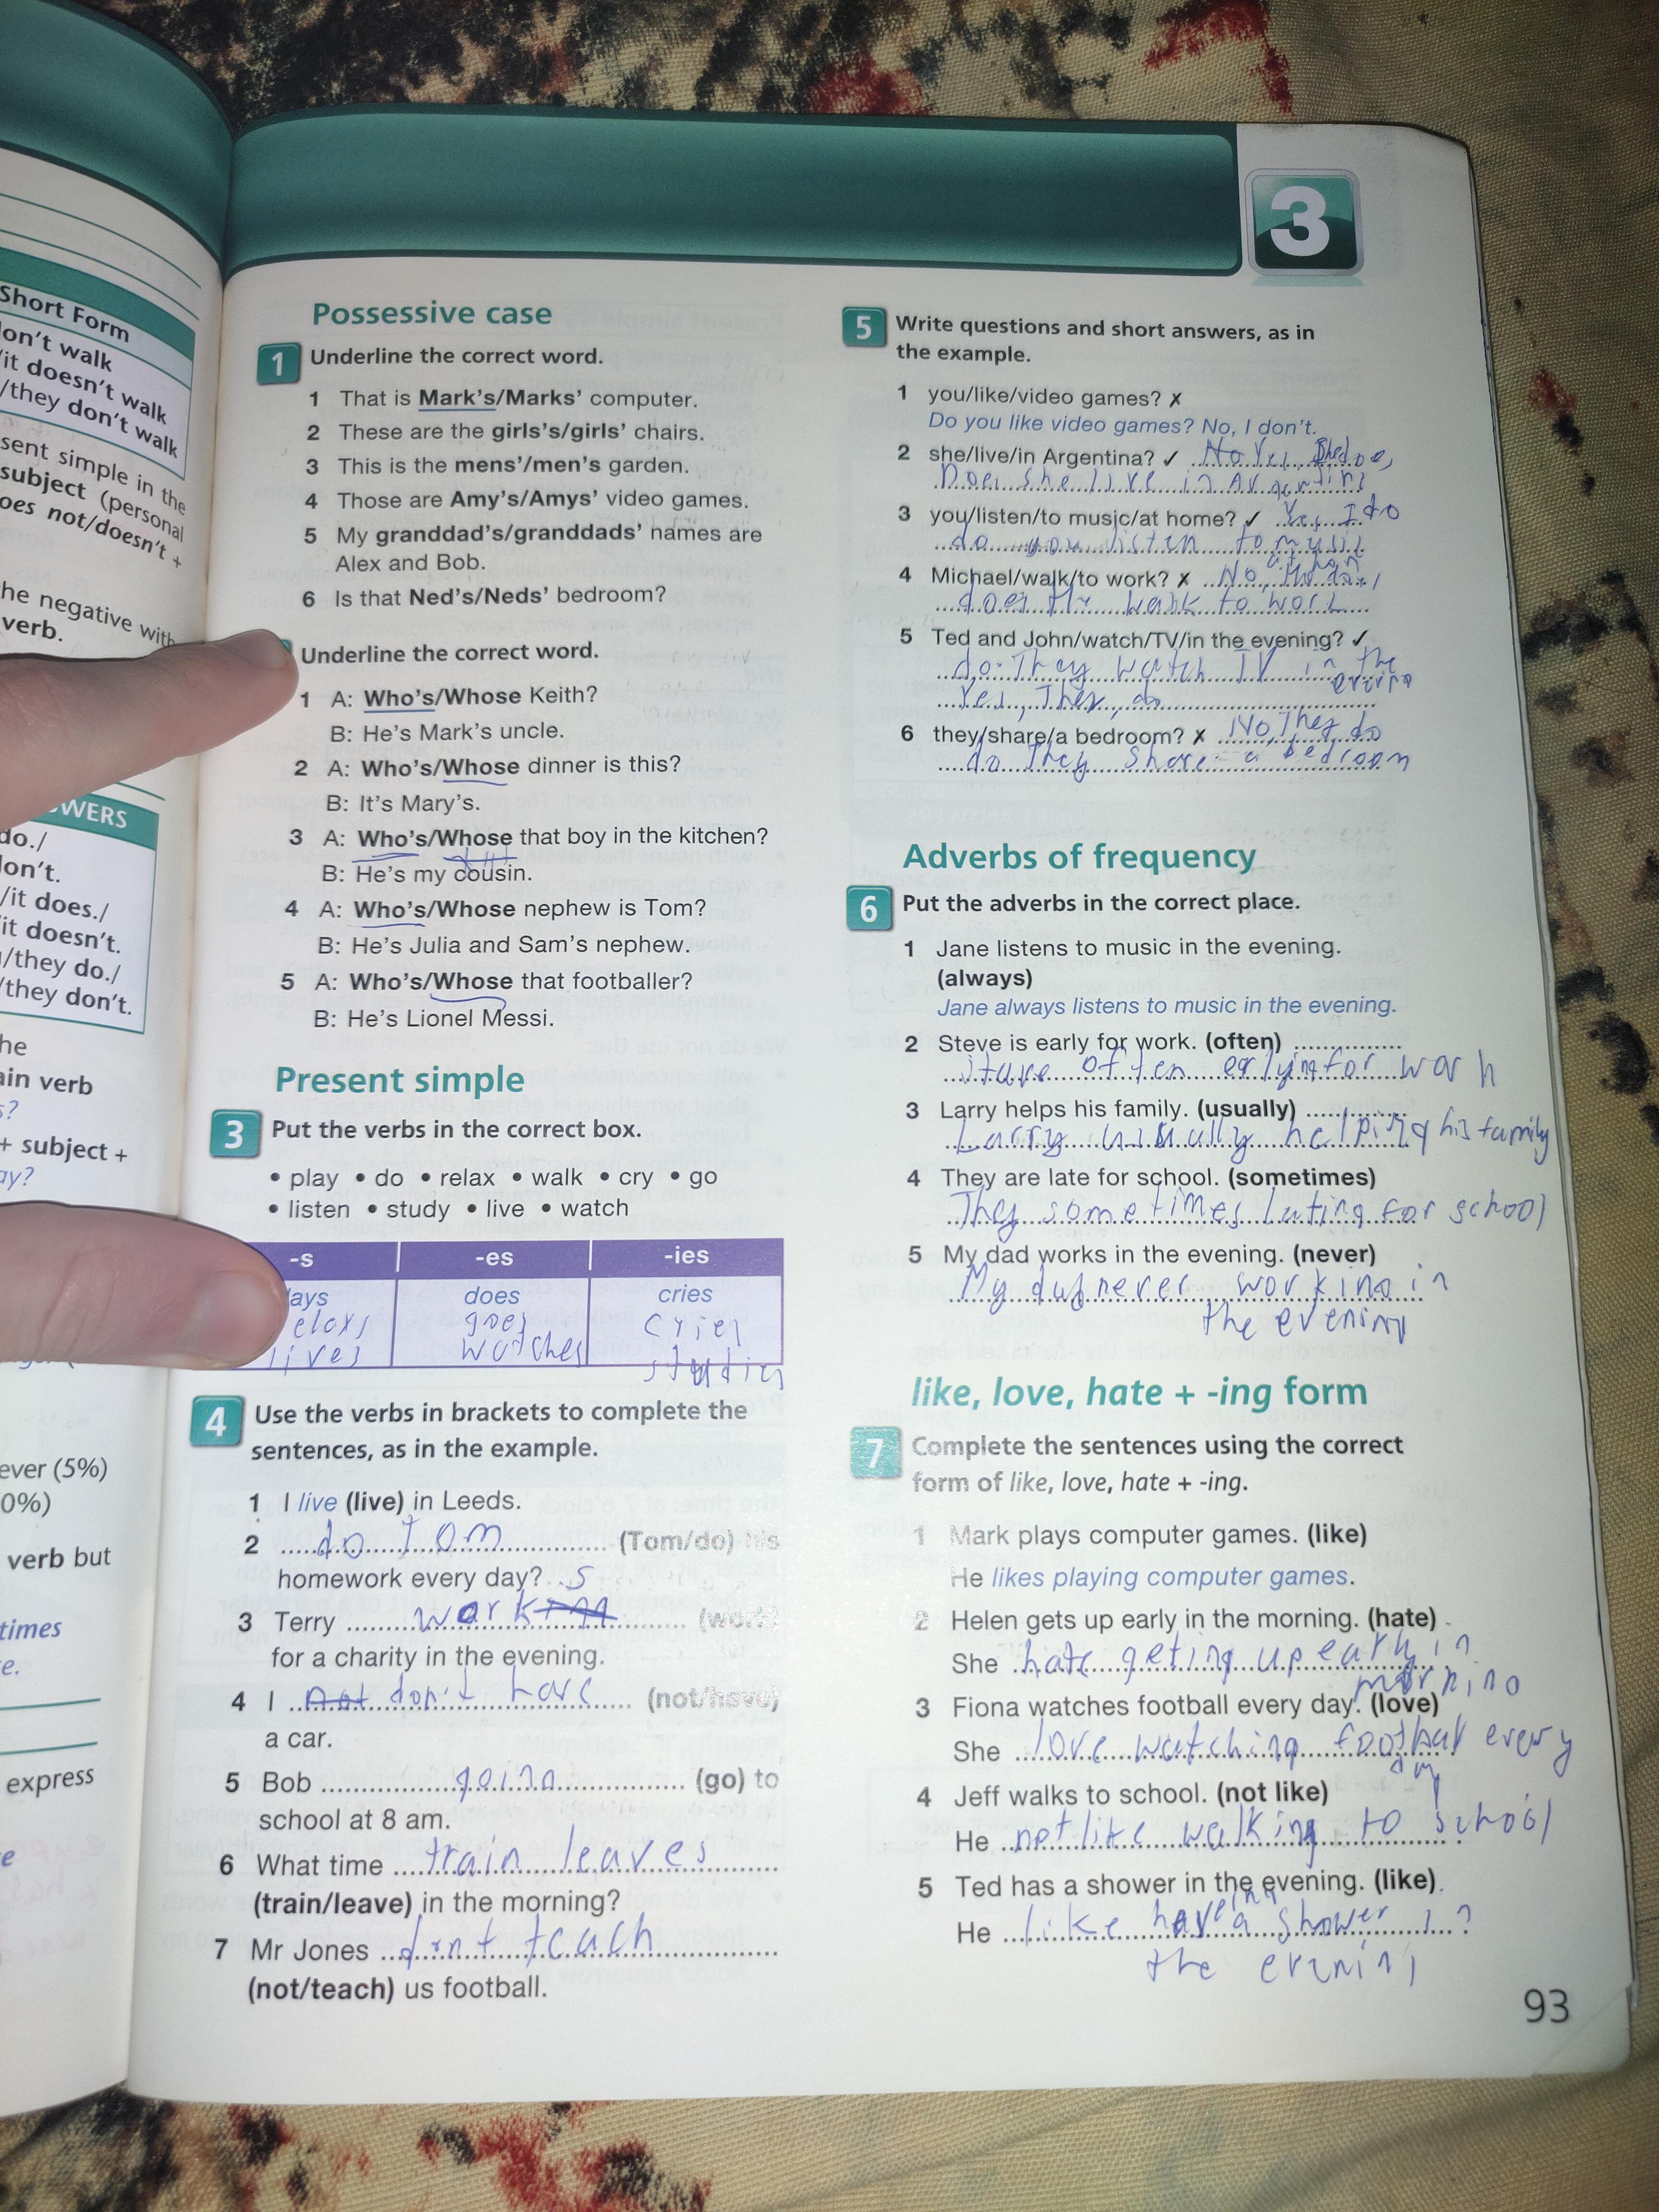 Short Form
don't walk
/it doesn't walk
/they don't walk
sent simple in the
subject (personal
oes not/doesn't +
he negative with
verb.
WERS
do./
don't.
/it does./
it doesn't.
/they do./
/they don't.
he
ain verb
s?
+ subject +
ay?
ever (5%)
0%)
verb but
times
e.
express
e
3
Possessive case
1 Underline the correct word.
1 That is Mark's/Marks' computer.
2 These are the girls's/girls' chairs.
3 This is the mens'/men's garden.
4 Those are Amy's/Amys' video games.
5 My granddad's/granddads' names are
Alex and Bob.
6 Is that Ned's/Neds' bedroom?
Underline the correct word.
1 A: Who's/Whose Keith?
B: He's Mark's uncle.
2 A: Who's/Whose dinner is this?
B: It's Mary's.
3 A: Who's/Whose that boy in the kitchen?
B: He's my cousin.
4 A: Who's/Whose nephew is Tom?
B: He's Julia and Sam's nephew.
5 A: Who's/Whose that footballer?
B: He's Lionel Messi.
Present simple
3 Put the verbs in the correct box.
• play • do • relax • walk • cry • go
• listen • study • live • watch
-s -es -ies
lays does cries
elaxs goes cries
lives watches studies
4 Use the verbs in brackets to complete the
sentences, as in the example.
1 I live (live) in Leeds.
2 do Tom (Tom/do) his
homework every day?
3 Terry works (work)
for a charity in the evening.
4 I don't have (not/have)
a car.
5 Bob going (go) to
school at 8 am.
6 What time train leaves
(train/leave) in the morning?
7 Mr Jones dont teach
(not/teach) us football.
5 Write questions and short answers, as in
the example.
1 you/like/video games? ✗
Do you like video games? No, I don't.
2 she/live/in Argentina? ✓ Yes, She does
Does she live in Argentina
3 you/listen/to music/at home? ✓ Yes, I do
do you listen to music
4 Michael/walk/to work? ✗ No,
does walk to work
5 Ted and John/watch/TV/in the evening? ✓
do They watch TV in the
evening
Yes, They do
6 they/share/a bedroom? ✗ No, They do
do They Share a bedroom
Adverbs of frequency
6 Put the adverbs in the correct place.
1 Jane listens to music in the evening.
(always)
Jane always listens to music in the evening.
2 Steve is early for work. (often)
often earlying for work
3 Larry helps his family. (usually)
Larry usually helping his family
4 They are late for school. (sometimes)
They sometimes lating for school
5 My dad works in the evening. (never)
My dad never working in
the evening
like, love, hate + -ing form
7 Complete the sentences using the correct
form of like, love, hate + -ing.
1 Mark plays computer games. (like)
He likes playing computer games.
2 Helen gets up early in the morning. (hate)
She hate geting up early in
morning
3 Fiona watches football every day. (love)
She love watching football every
day
4 Jeff walks to school. (not like)
He not like walking to school
5 Ted has a shower in the evening. (like)
He like haveing a shower in
the evening
93